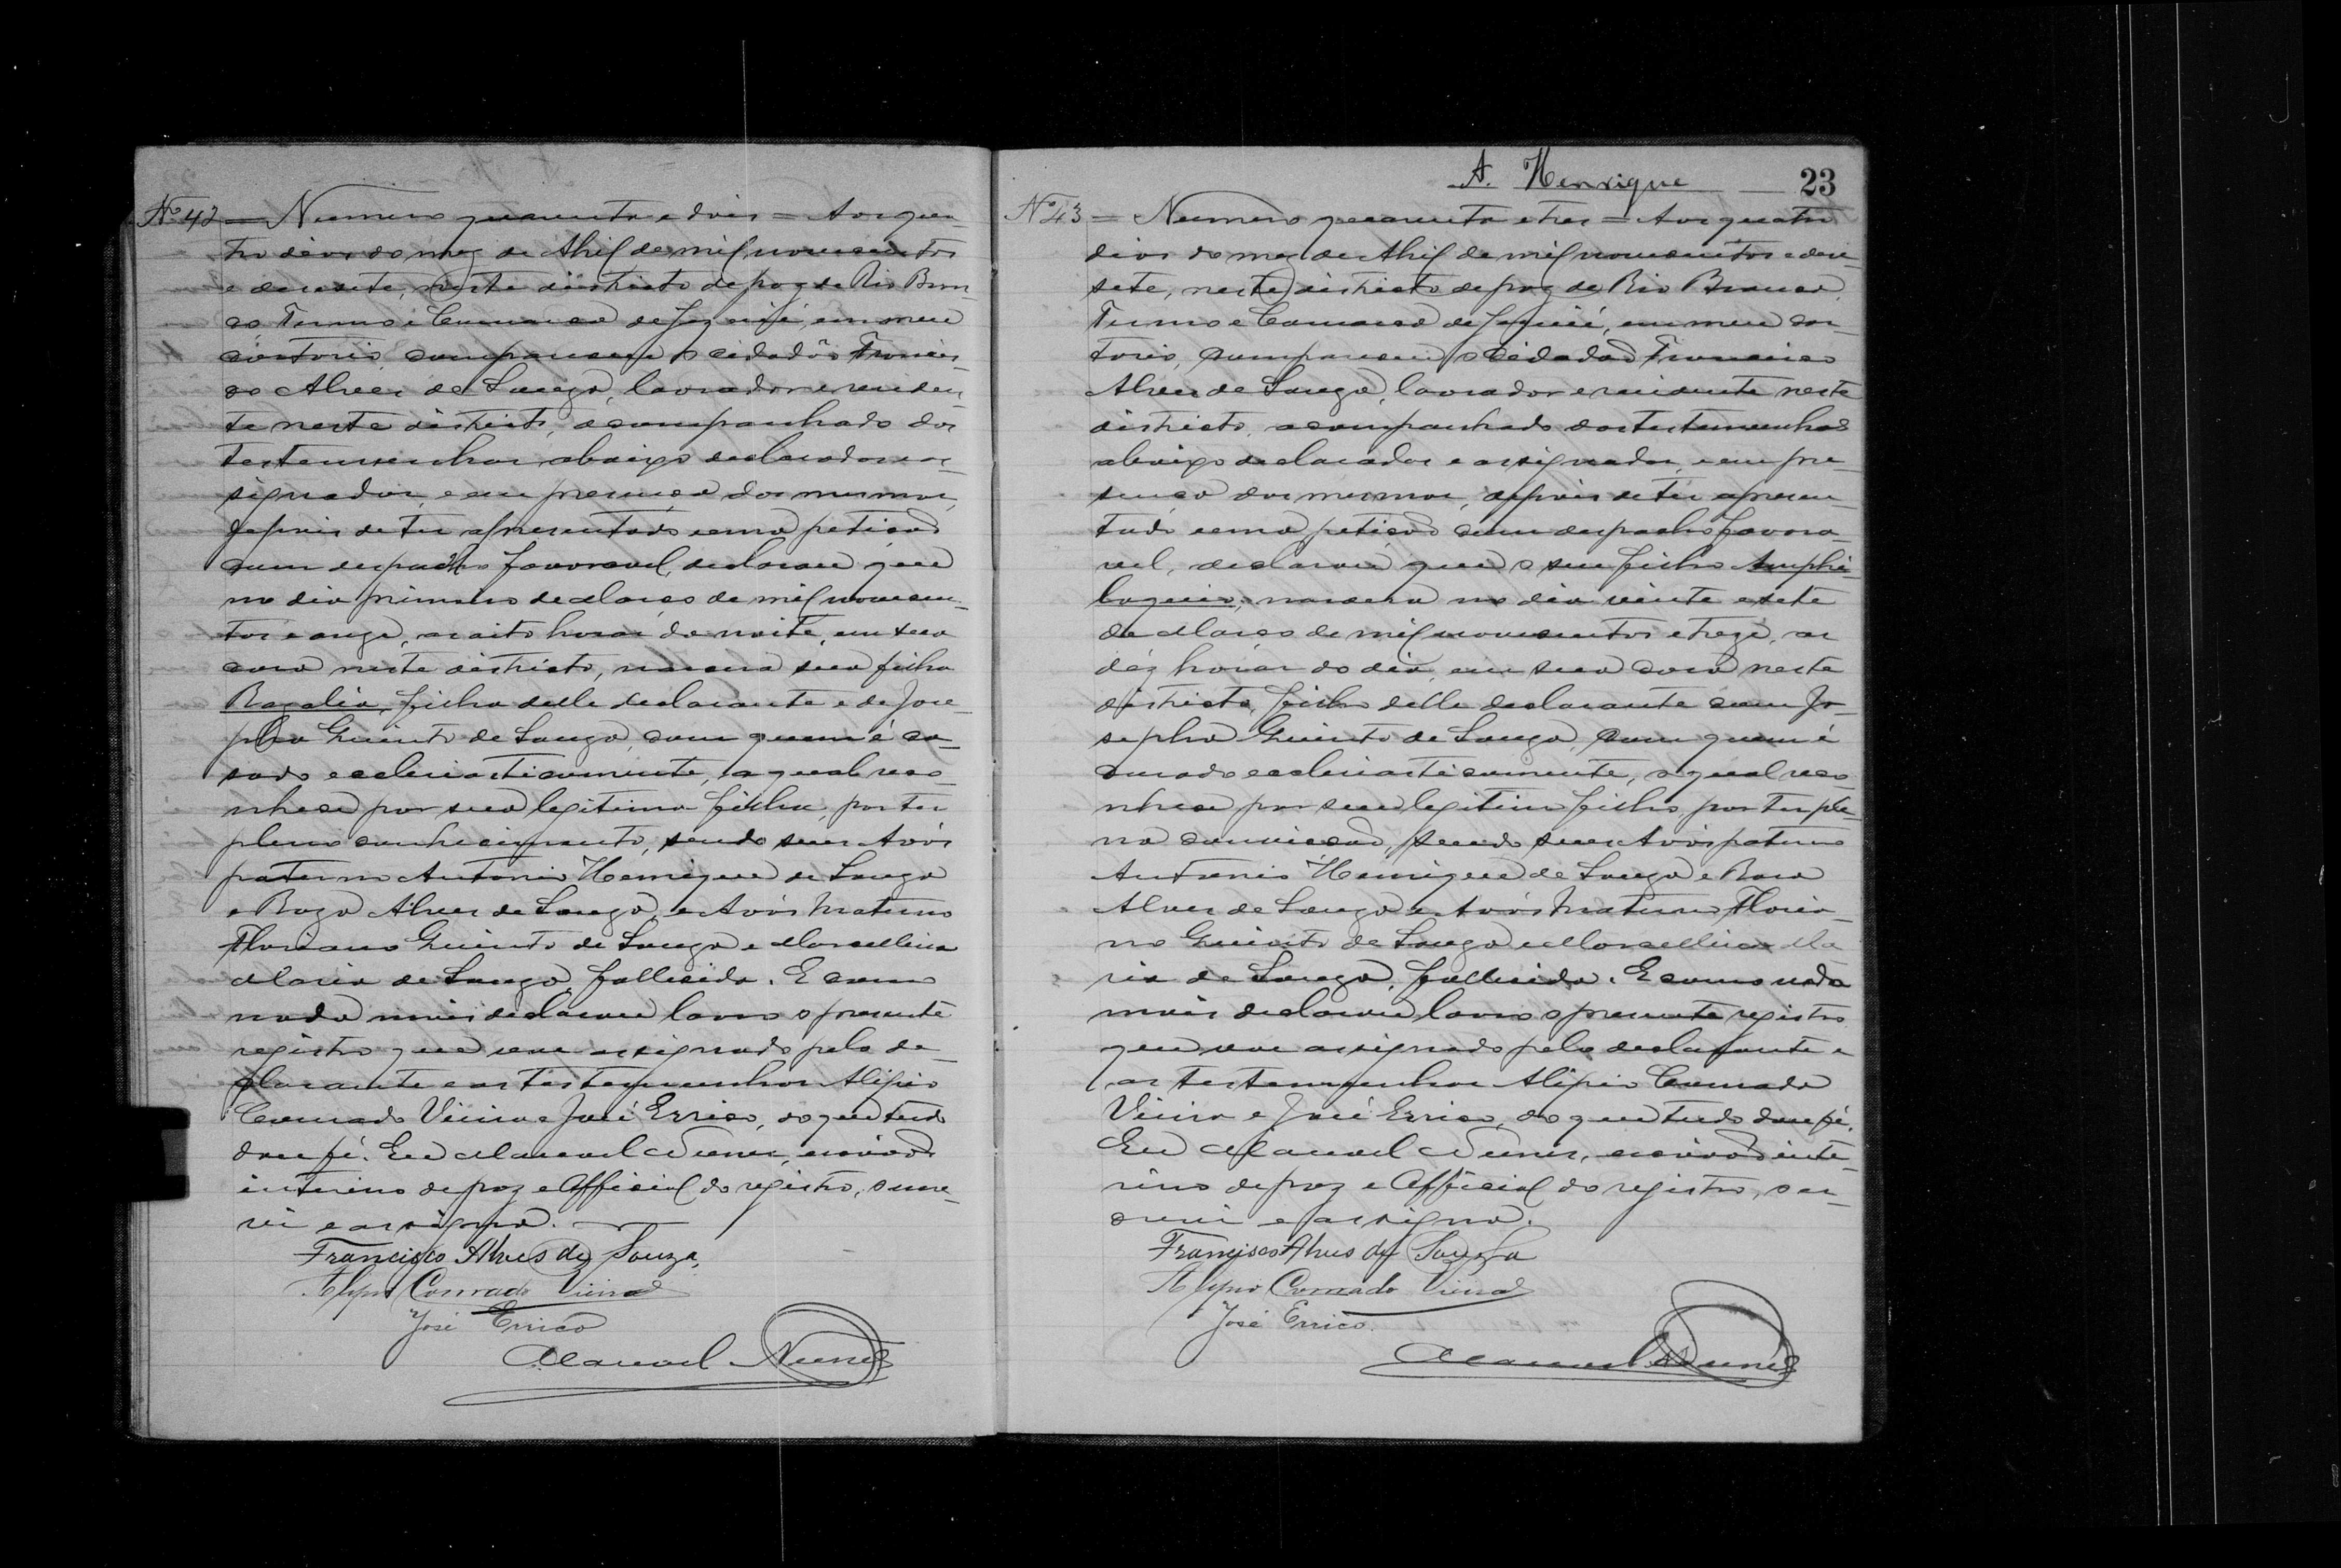 Nº 42 = Numero quarenta e dois = Aos qua-
tro dias do mez de Abril de mil novecentos
e desesete, neste districto de paz de Rio Bran-
co Termo e Comarca de Jequié, em meu
cartorio, compareceu o cidadão Francis-
co Alves de Souza, lavrador e residen-
te neste districto, acompanhado dos
testemunhas abaixo declarados e as-
signados, e em presença dos mesmos,
depois de ter apresentado uma petição
com despacho favoravel, declarou que
no dia primeiro de Março de mil novecen-
tos e onze, as oito horas da noite, em sua
casa neste districto, nascera sua filha
Rozalia, filha delle declarante e de Jose-
pha Quinto de Souza, com quem é ca-
sado ecclesiasticamente, a qual reco-
nhece por sua legitima filha, por ter
pleno conhecimento, sendo seus Avós
paterno Antonio Henrique de Souza
e Roza Alves de Souza, e Avós Materno
Floriano Quinto de Souza e Marcellina
Maria de Souza, fallecida. E como
nada mais declarou lavro o presente
registro que vae assignado pelo de-
clarante e as testemunhas Alipio
Conrado Vieira e José Errico, do que tudo
dou fé. Eu Manoel Nunes, escrivão
interino de paz e Official do registro, o escre-
vi e assigno.
Francisco Alves de Souza,
Alypio Conrado Vieira
José Errico
Manoel Nunes
A. Henrique 23
Nº 43 = Numero quarenta e tres = Aos quatro
dias do mez de Abril de mil novecentos e dese-
sete, neste districto de paz de Rio Branco,
Termo e Comarca de Jequié, em meu car-
torio, compareceu o Cidadão Francisco
Alves de Souza, lavrador e residente neste
districto, acompanhado das testemunhas
abaixo declarados e assignados, e em pre-
sença dos mesmos, depois de ter apresen-
tado uma petição com despacho favora-
vel, declarou que o seu filho Amphi-
loquio, nascera no dia vinte e sete
de Março de mil novecentos e treze, as
déz horas do dia, em sua casa neste
districto, filho delle declarante com Jo-
sepha Quinto de Souza, com quem é
casado ecclesiasticamente, o qual reco-
nhece por seu legitimo filho, por ter ple-
na convicção, sendo seus Avós paterno
Antonio Henrique de Souza e Rosa
Alves de Souza e Avós Materno Floria-
no Quinto de Souza e Marcellina Ma
ria de Souza, fallecida. E como nada
mais declarou lavro o presente registro
que vae assignado pelo declarante e
as testemunhas Alipio Conrado
Vieira e José Errico, do que tudo dou fé.
Eu Manoel Nunes, escrivão inte-
rino de paz e Official do registro, o es-
crevi e assigno.
Francisco Alves de Souza
Alypio Conrado Vieira
José Errico.
Manoel Nunes